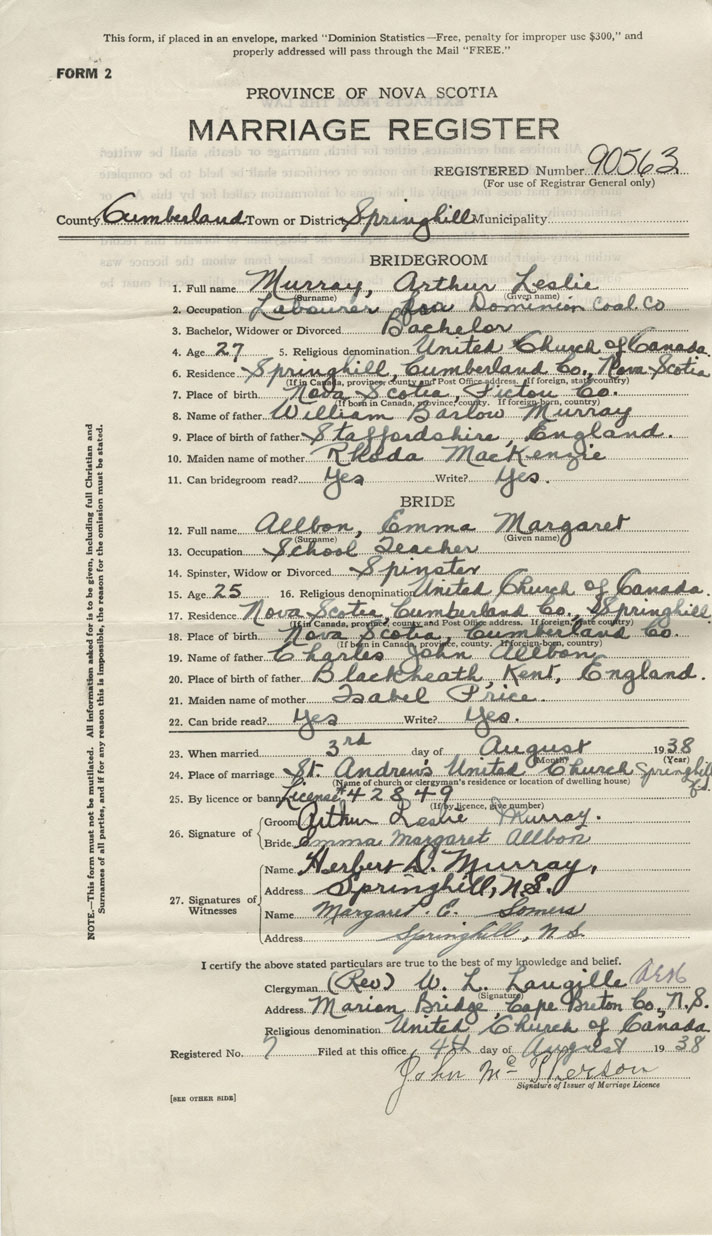 This form, if placed in an envelope, marked "Dominion Statistics—Free, penalty for improper use $300," and
properly addressed will pass through the Mail "FREE."
FORM 2
PROVINCE OF NOVA SCOTIA
MARRIAGE REGISTER
REGISTERED Number 90563
(For use of Registrar General only)
County Cumberland Town or District Springhill Municipality
BRIDEGROOM
1. Full name Murray, Arthur Leslie
(Surname) (Given name)
2. Occupation Labourer Dominion Coal Co
3. Bachelor, Widower or Divorced Bachelor
4. Age 27 5. Religious denomination United Church of Canada.
6. Residence Springhill, Cumberland Co., Nova Scotia
(If in Canada, province, county and Post Office address. If foreign, state country)
7. Place of birth Nova Scotia, Pictou Co.
(If born in Canada, province, county. If foreign-born, country)
8. Name of father William Barlow Murray
9. Place of birth of father Staffordshire, England.
10. Maiden name of mother Rhoda MacKenzie
11. Can bridegroom read? Yes Write? Yes.
BRIDE
12. Full name Allbon, Emma Margaret
(Surname) (Given name)
13. Occupation School Teacher
14. Spinster, Widow or Divorced Spinster
15. Age 25 16. Religious denomination United Church of Canada.
17. Residence Nova Scotia, Cumberland Co., Springhill.
(If in Canada, province, county and Post Office address. If foreign, state country)
18. Place of birth Nova Scotia, Cumberland Co.
(If born in Canada, province, county. If foreign-born, country)
19. Name of father Charles John Allbon
20. Place of birth of father Blackheath, Kent, England.
21. Maiden name of mother Isabel Price.
22. Can bride read? Yes Write? Yes.
23. When married 3rd day of August 1938
(Month) (Year)
24. Place of marriage St. Andrew's United Church Springhill
(Name of church or clergyman's residence or location of dwelling house)
25. By licence or banns License #42849
(If by licence, give number)
26. Signature of Groom Arthur Leslie Murray.
Bride Emma Margaret Allbon
27. Signatures of Witnesses
Name Herbert D. Murray,
Address Springhill, N.S.
Name Margaret E. Somers
Address Springhill, N.S.
I certify the above stated particulars are true to the best of my knowledge and belief.
Clergyman (Rev) W. L. Langille
(Signature)
Address Marion Bridge Cape Breton Co., N.S.
Religious denomination United Church of Canada
Registered No. 7 Filed at this office 4th day of August 1938
John McPherson
Signature of Issuer of Marriage Licence
[SEE OTHER SIDE]
NOTE.—This form must not be mutilated. All information asked for is to be given, including full Christian and
Surnames of all parties, and if for any reason this is impossible, the reason for the omission must be stated.